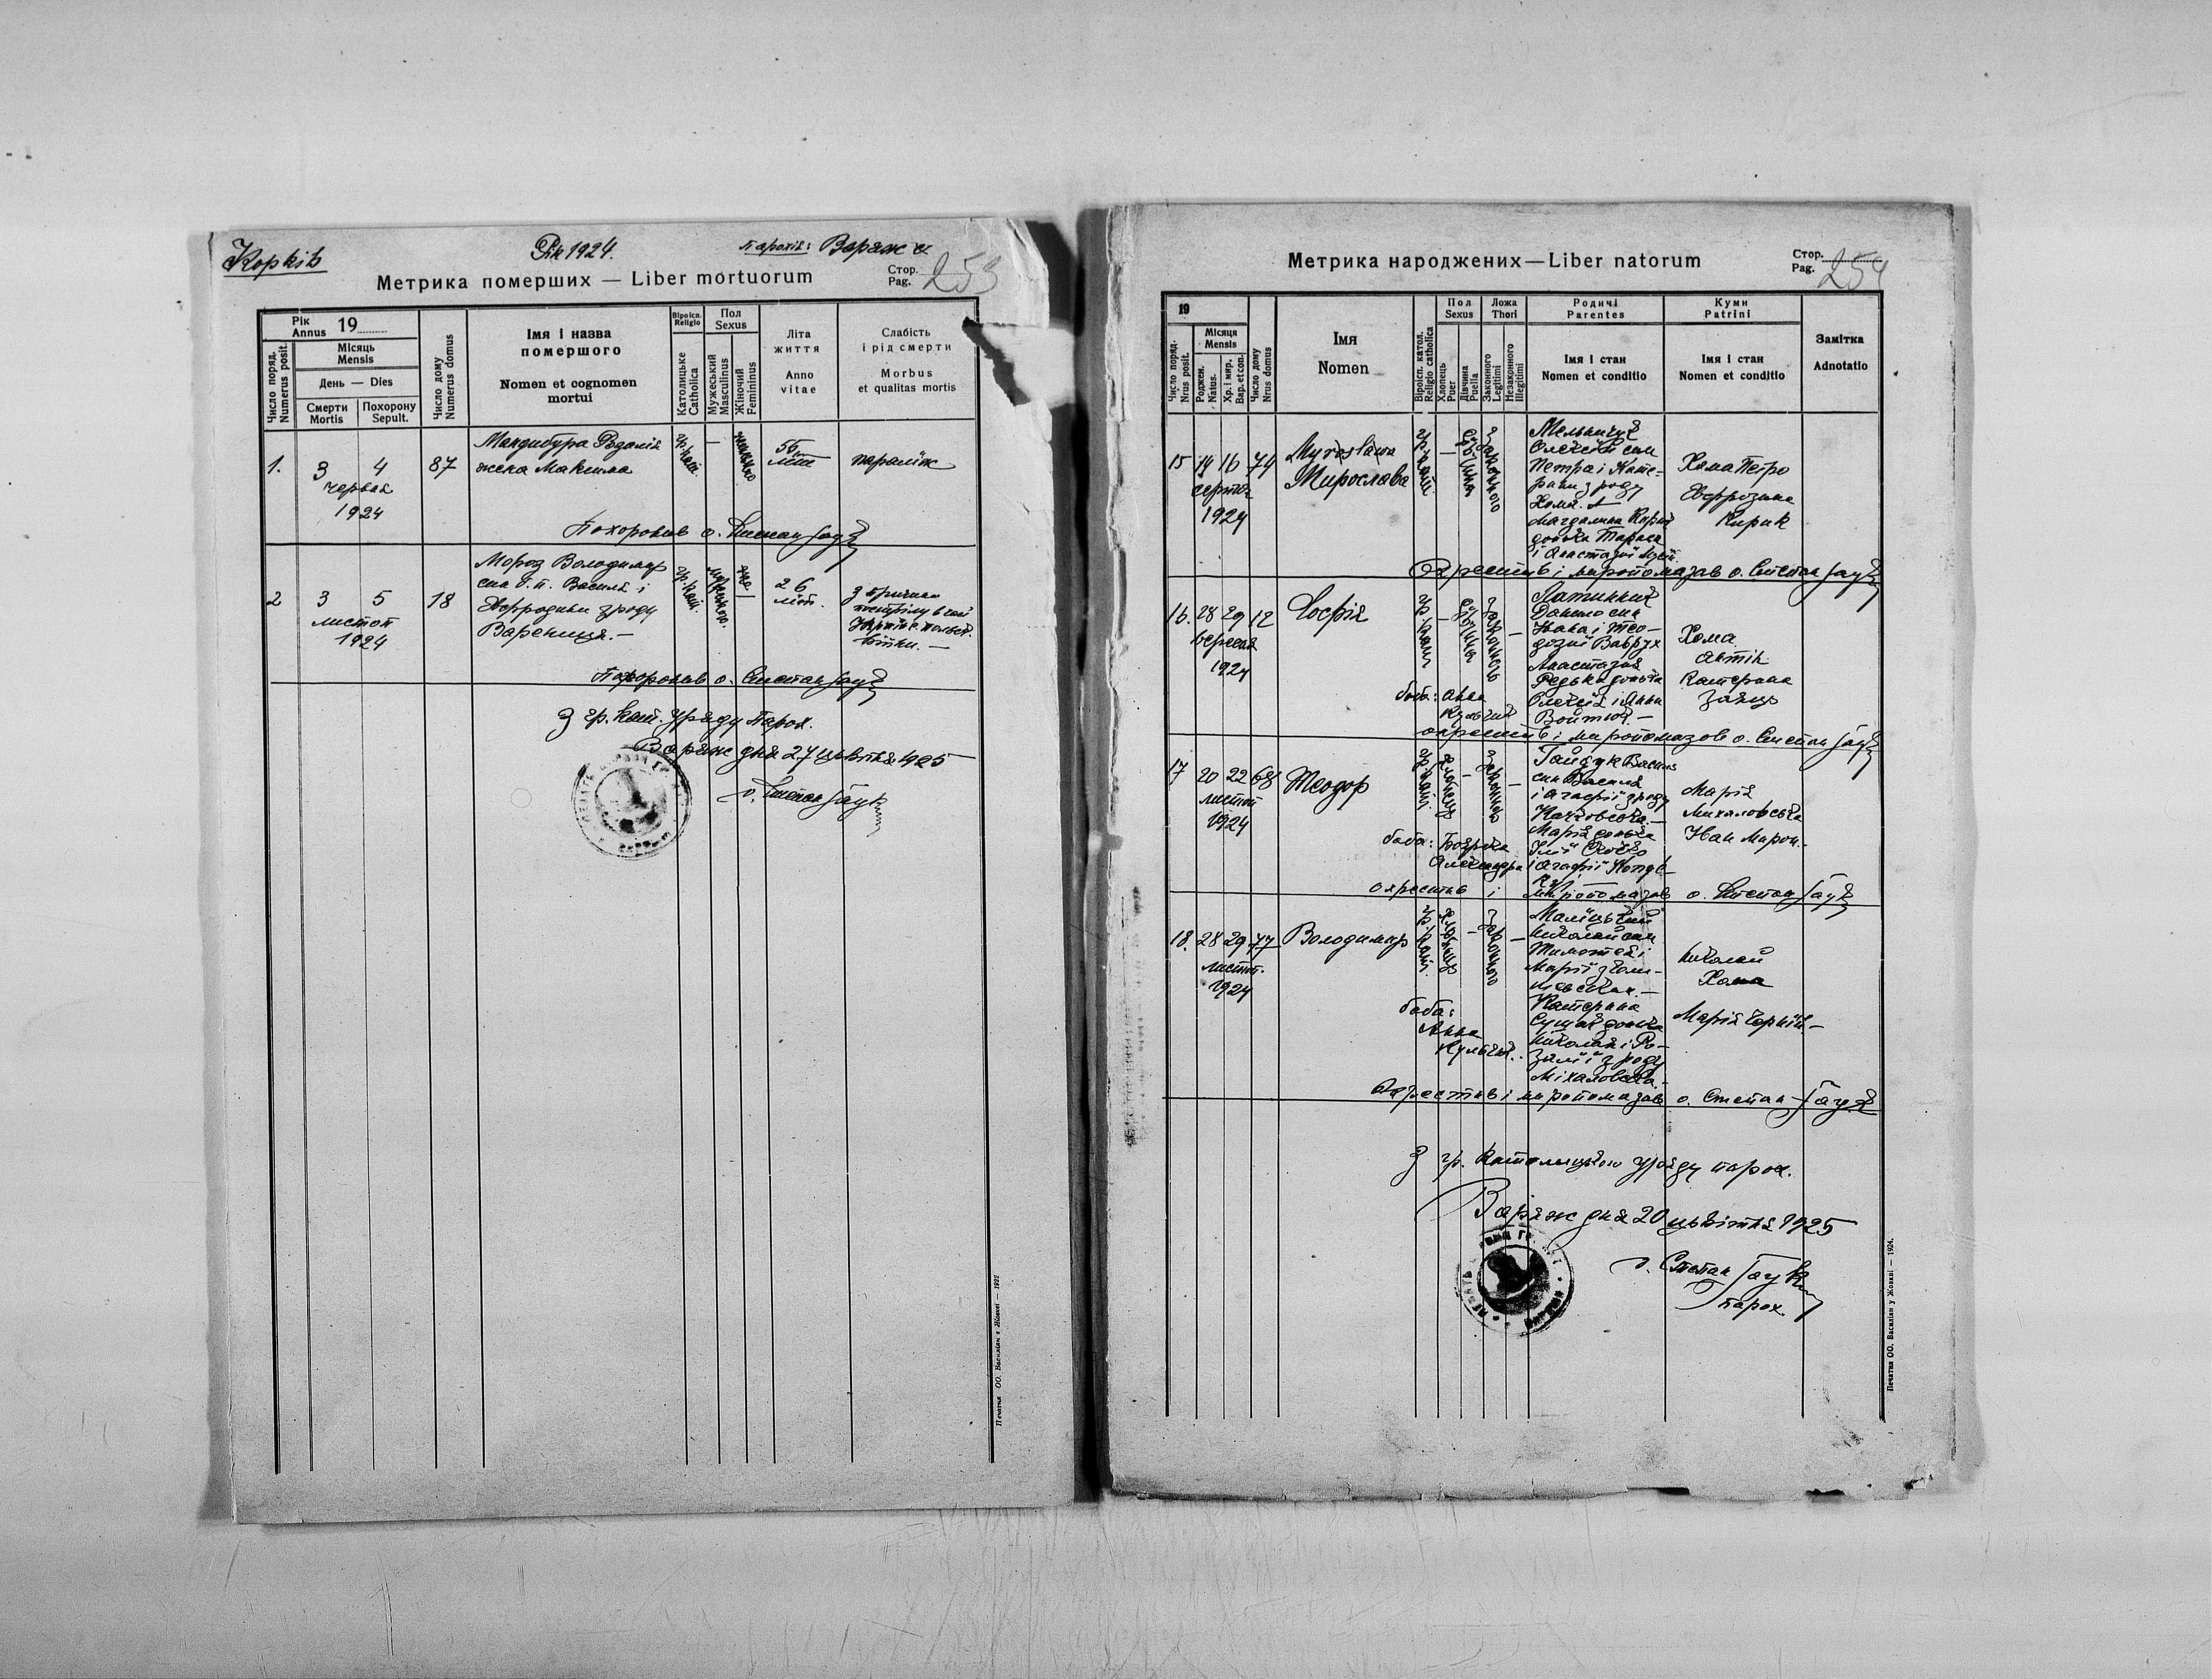 Корків
Рік 1924.
парохія: Варяж
Метрика померших — Liber mortuorum
Стор.
Pag.
253
Рік
Annus 19
Число поряд.
Numerus posit.
Місяць
Mensis
День — Dies
Смерти
Mortis
Похорону
Sepult.
Число дому
Numerus domus
Імя і назва
помершого
Nomen et cognomen
mortui
Віроісп.
Religio
Католицьке
Catholica
Пол
Sexus
Мужеський
Masculinus
Жіночий
Femininus
Літа
життя
Anno
vitae
Слабість
і рід смерти
Morbus
et qualitas mortis
1.
3 4
червня
1924
87
Мандибура Розалія
жена Максима
гр. кат.
—
56
літ
параліж
Похоронив о. Степан Гаук
2
3 5
листоп
1924
18
Мороз Володимир
син б. п. Василя і
Евфрозини з роду
Варениця. —
гр. кат.
26
літ.
з причини
пострілу в
Похоронив о. Степан Гаук
З гр. кат. уряду парох.
Варяж дня 27 цьвітня 1925
о. Степан Гаук
Печатня ОО. Василіян в Жовкві — 1922
Метрика народжених—Liber natorum
Стор.
Pag.
254
19
Число поряд.
Nrus posit.
Місяця
Mensis
Роджен.
Natus.
Хр. і мир.
Bap. et con.
Число дому
Nrus domus
Імя
Nomen
Віроісп. катол.
Religio catholica
Пол
Sexus
Хлопець
Puer
Дівчина
Puella
Ложа
Thori
Законного
Legitimi
Незаконного
Illegitimi
Родичі
Parentes
Імя і стан
Nomen et conditio
Куми
Patrini
Імя і стан
Nomen et conditio
Замітка
Adnotatio
15 14 16 74
серпня
1924
Myrosława
Мирослава
гр. кат.
дівчина
законного
Мельничук
Олексій син
Петра і Кате-
рини з роду
Хома. +
Магдалина Кирик
донька Тараса
і Анастазиї
Хома Петро
Евфрозина
Кирик
Охрестив і миропомазав о. Степан Гаук
16. 28 29 12
вересня
1924
Софія
гр. кат.
дівчина
законного
Данило син
Івана і Тео-
дозиї Ваврух
Анастазия
Редька донька
Олексія і Анни
Войтюк. —
Хома
Антін
Катерина
Заяць
баба: Анна
охрестив і миропомазав о. Степан Гаук
17 20 22 68
листоп
1924
Теодор
гр. кат.
хлопець
законного
Гайдук Василь
син Василя
і Агафії з роду
Марія донька
Марія
Михаловська
Іван Мирон.
баба: Боярска
Александра
охрестив і миропомазав о. Степан Гаук
18. 28 29 77
листоп.
1924
Володимир
гр. кат.
хлопець
законного
Николай син
Тимотея і
Марії з
Катерина
донька
Николая і Ро-
залії з роду
Міхаловска. —
Николай
Хома
Марія
баба:
Анна
Охрестив і миропомазав о. Степан Гаук
З гр. католицького уряду парох.
Варяж дня 20 цьвітня 1925
о. Степан Гаук
парох.
Печатня ОО. Василіян у Жовкві — 1924.